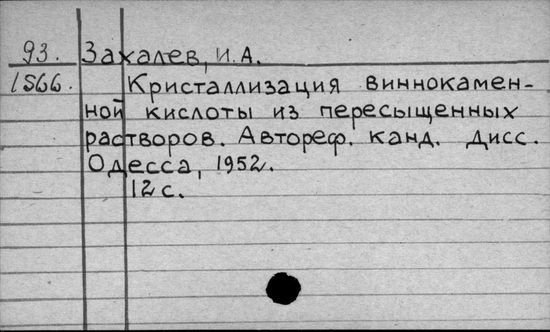 93. Захалев, И.А.
1566. Кристаллизация виннокамен-
ной кислоты из пересыщенных
растворов. Автореф. канд. дисс.
Одесса, 1952.
12 с.